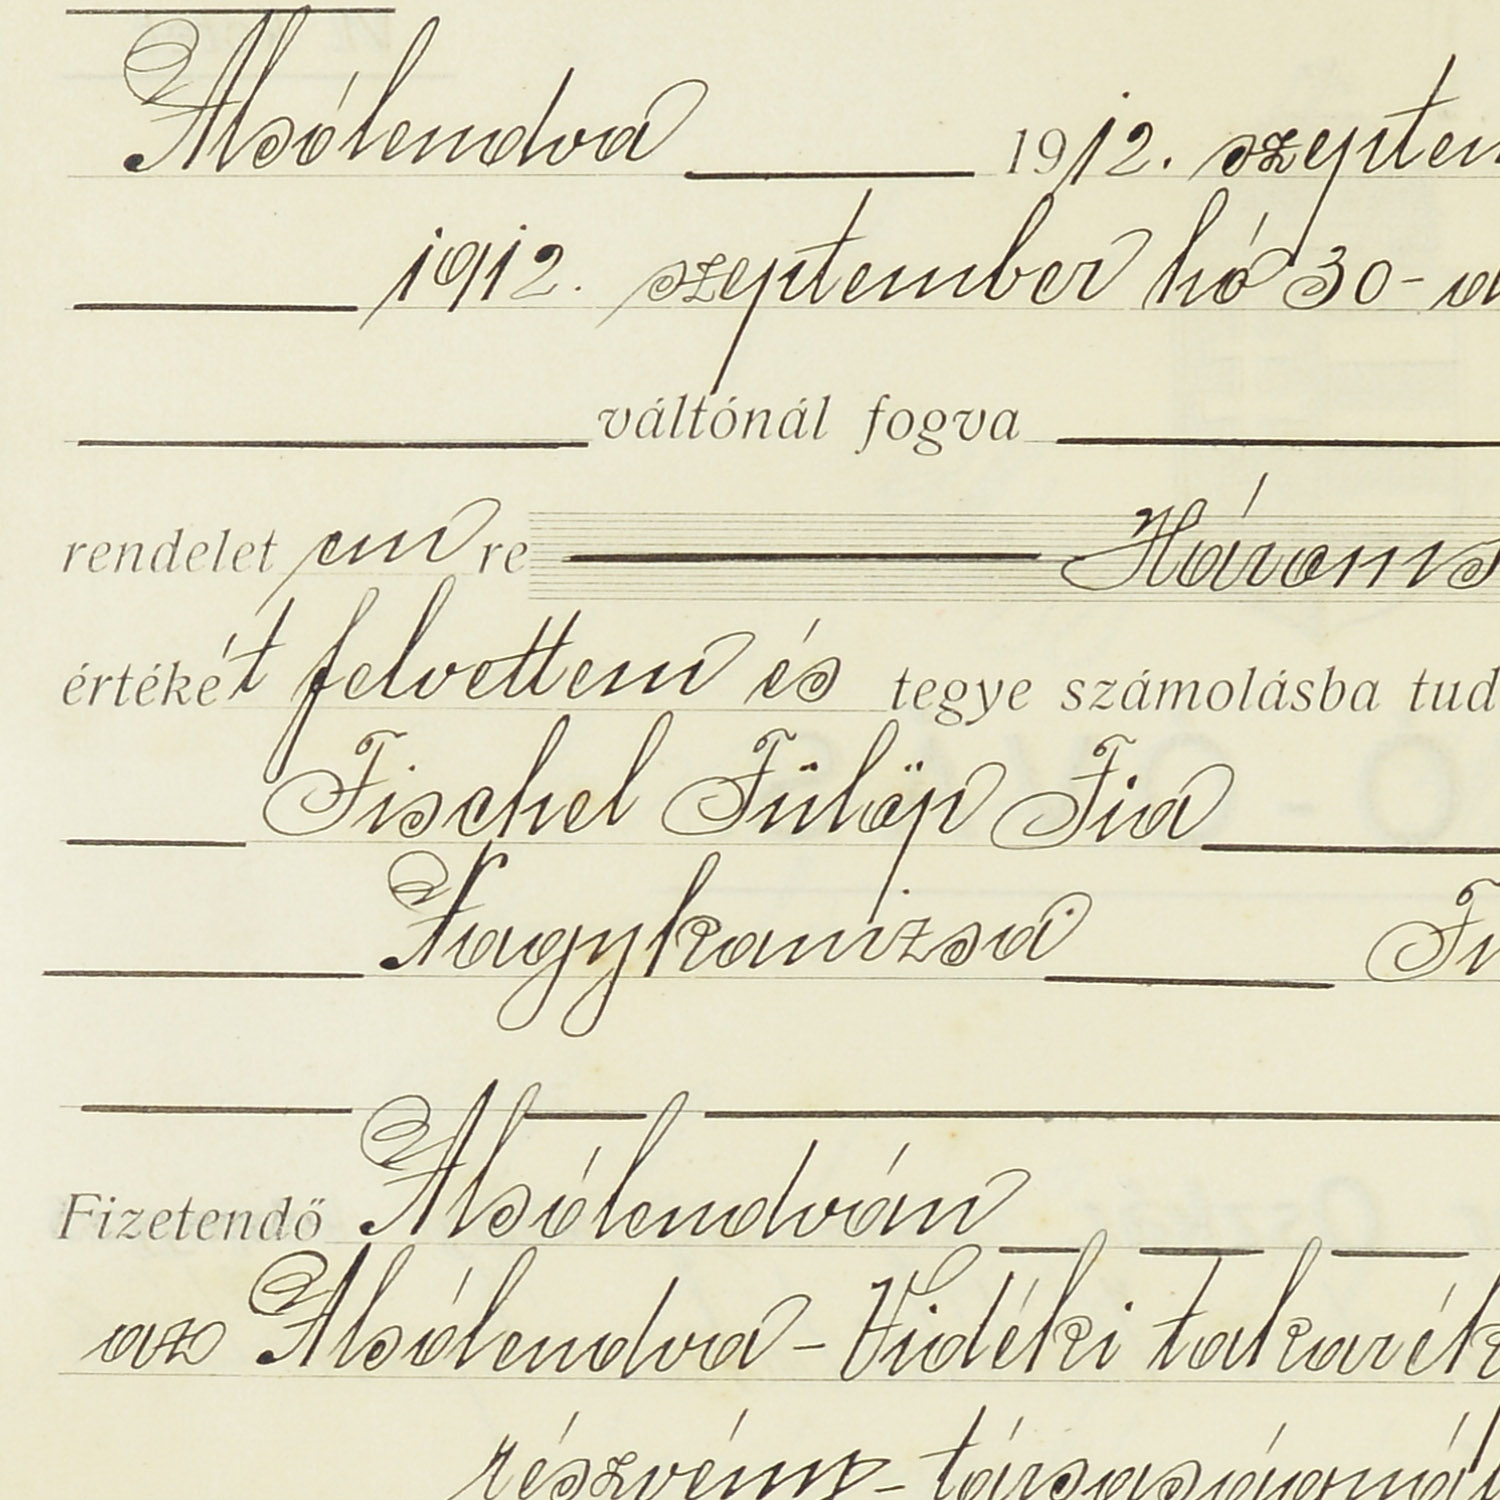 Alsólendva 1912. szeptem
1912. szeptember hó 30-
váltónál fogva
rendelet em re Hároms
értékét felvettem és tegye számolásba tud
Fischel Fülöp Fia
Nagykanizsa
Fizetendő Alsólendván
az Alsólendva-Vidéki takarék
részvény-társaságnál